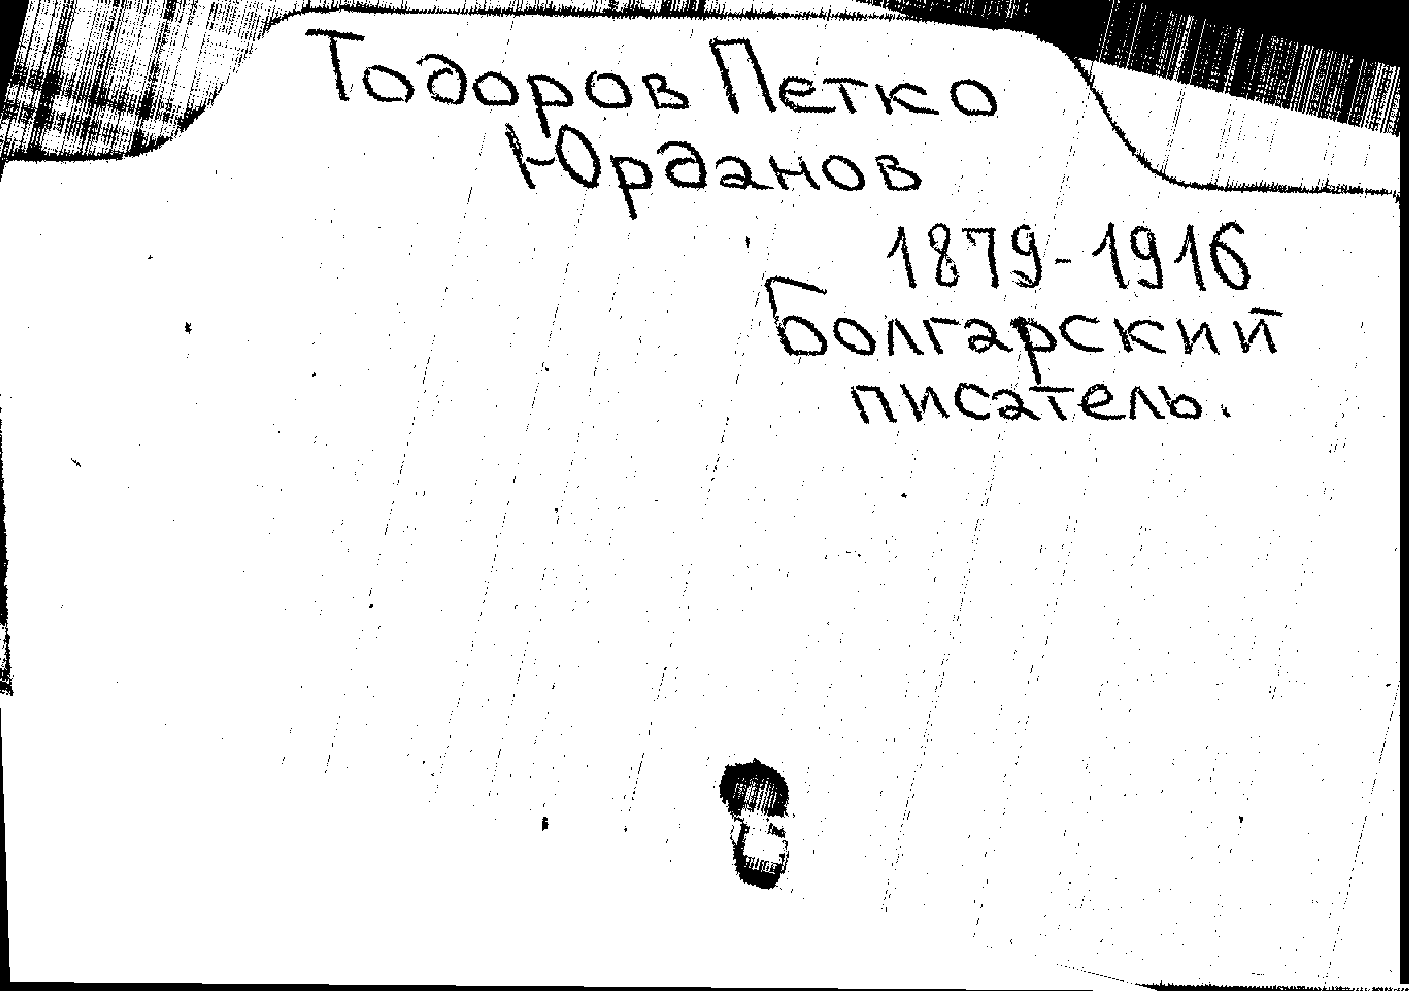 Тодоров Петко
Юрданов
1879-1916
Болгарский
писатель.